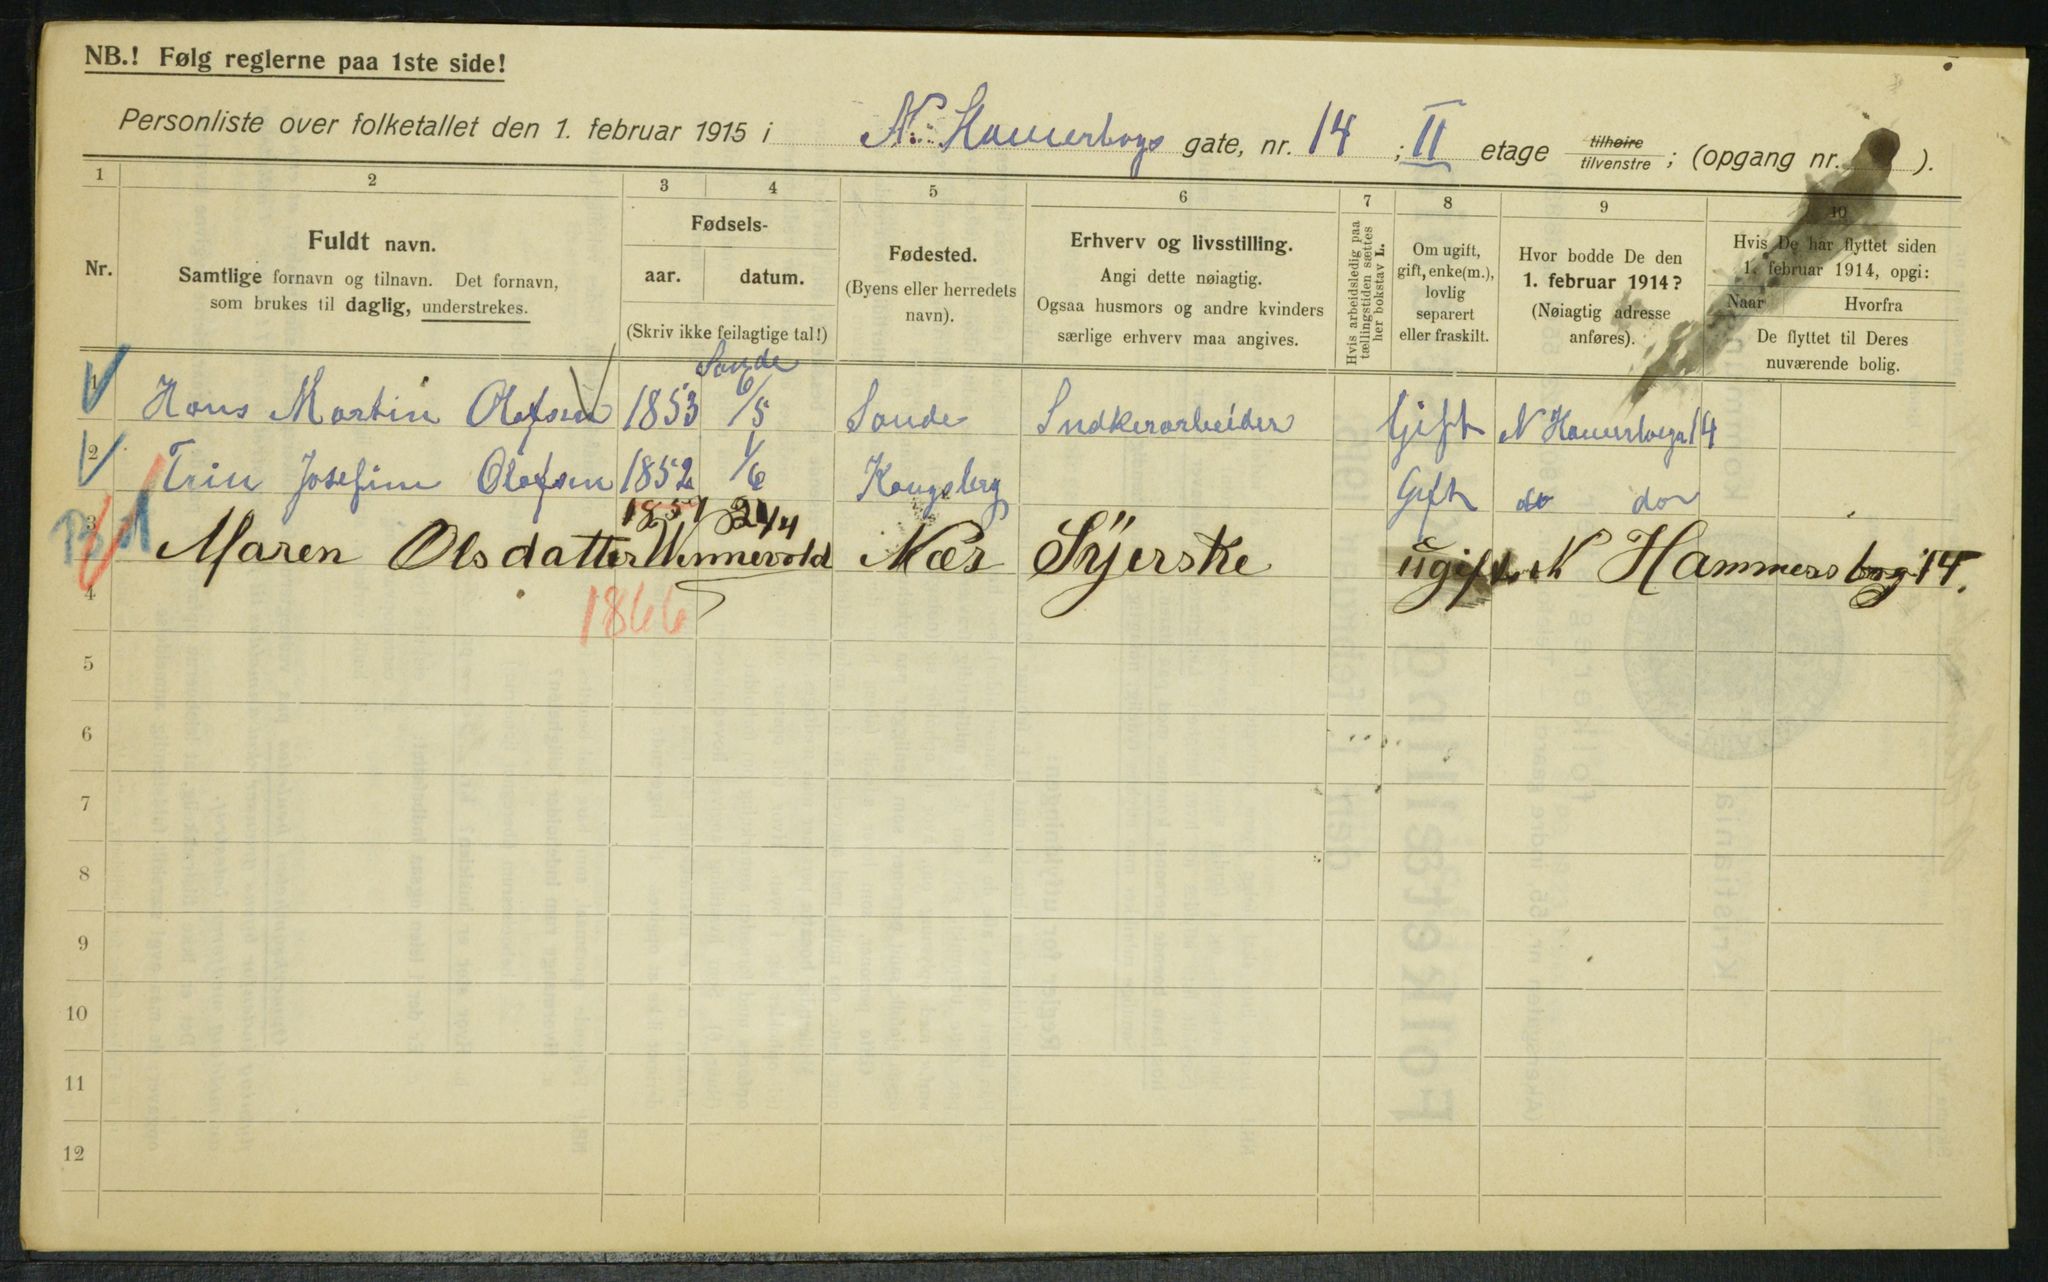 NB.! Følg reglerne paa 1ste side!
Personliste over folketallet den 1. februar 1915 i N. Hamerborgs gate, nr. 14 ; II etage tilhøire tilvenstre ; (opgang nr. ).
1 2 3 4 5 6 7 8 9 10
Nr.
Fuldt navn.
Samtlige fornavn og tilnavn. Det fornavn,
som brukes til daglig, understrekes.
Fødsels-
aar. datum.
(Skriv ikke feilagtige tal!)
Fødested.
(Byens eller herredets
navn).
Erhverv og livsstilling.
Angi dette nøiagtig.
Ogsaa husmors og andre kvinders
særlige erhverv maa angives.
Hvis arbeidsledig paa
tællingstiden sættes
her bokstav L.
Om ugift,
gift, enke(m.),
lovlig
separert
eller fraskilt.
Hvor bodde De den
1. februar 1914?
(Nøiagtig adresse
anføres).
Hvis De har flyttet siden
1. februar 1914, opgi:
Naar Hvorfra
De flyttet til Deres
nuværende bolig.
Sande
1 Hans Martin Olafsen 1853 6/5 Sande Snekerarbeider Gift N Hamerborgs 14
2 Trin Josefine Olafsen 1852 1/6 Kongsberg Gift do do
1851 24/4
3 Maren Olsdatter Wennevold Næs Syerske ugift N Hammersborg 14.
1866
4
5
6
7
8
9
10
11
12